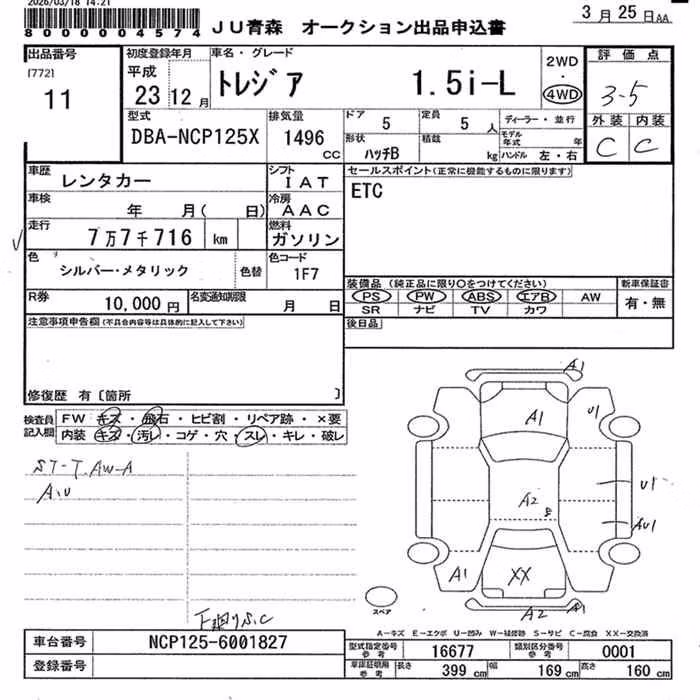 2026/03/18 14:21
8000004574
JU青森 オークション出品申込書
3月25日AA
出品番号
[772]
11
初度登録年月
平成
23 12月
車名・グレード
トレジア 1.5i-L
2WD
・
4WD
評価点
3-5
外装 内装
C C
型式
DBA-NCP125X
排気量
1496
CC
ドア
5
定員
5 人
形状
ハッチB
積載
kg
ディーラー・並行
モデル年式 年
ハンドル 左・右
車歴
レンタカー
シフト
IAT
車検
年 月( 日)
冷房
AAC
走行
7万7千716 km
燃料
ガソリン
色
シルバー・メタリック
色替
色コード
1F7
R券
10,000円
名変通知期限
月 日
セールスポイント(正常に機能するものに限ります)
ETC
装備品(純正品に限り○をつけてください)
PS PW ABS エアB AW
SR ナビ TV カワ
新車保証書
有・無
後日品
注意事項申告欄(不具合内容等は具体的に記入して下さい)
修復歴 有〔箇所 〕
検査員記入欄
FW キズ・飛石・ヒビ割・リペア跡・×要
内装 キズ・汚レ・コゲ・穴・スレ・キレ・破レ
ST-T.AW-A
A1
A1
U1
A2
U1
AU1
A1
XX
A2
A1
スペア
下廻りS.C
A-キズ E-エクボ U-凹み W-補修跡 S-サビ C-腐食 XX-交換済
車台番号
NCP125-6001827
登録番号
型式指定番号
参考
16677
類別区分番号
参考
0001
車庫証明用
参考
長さ
399 cm
幅
169 cm
高さ
160 cm